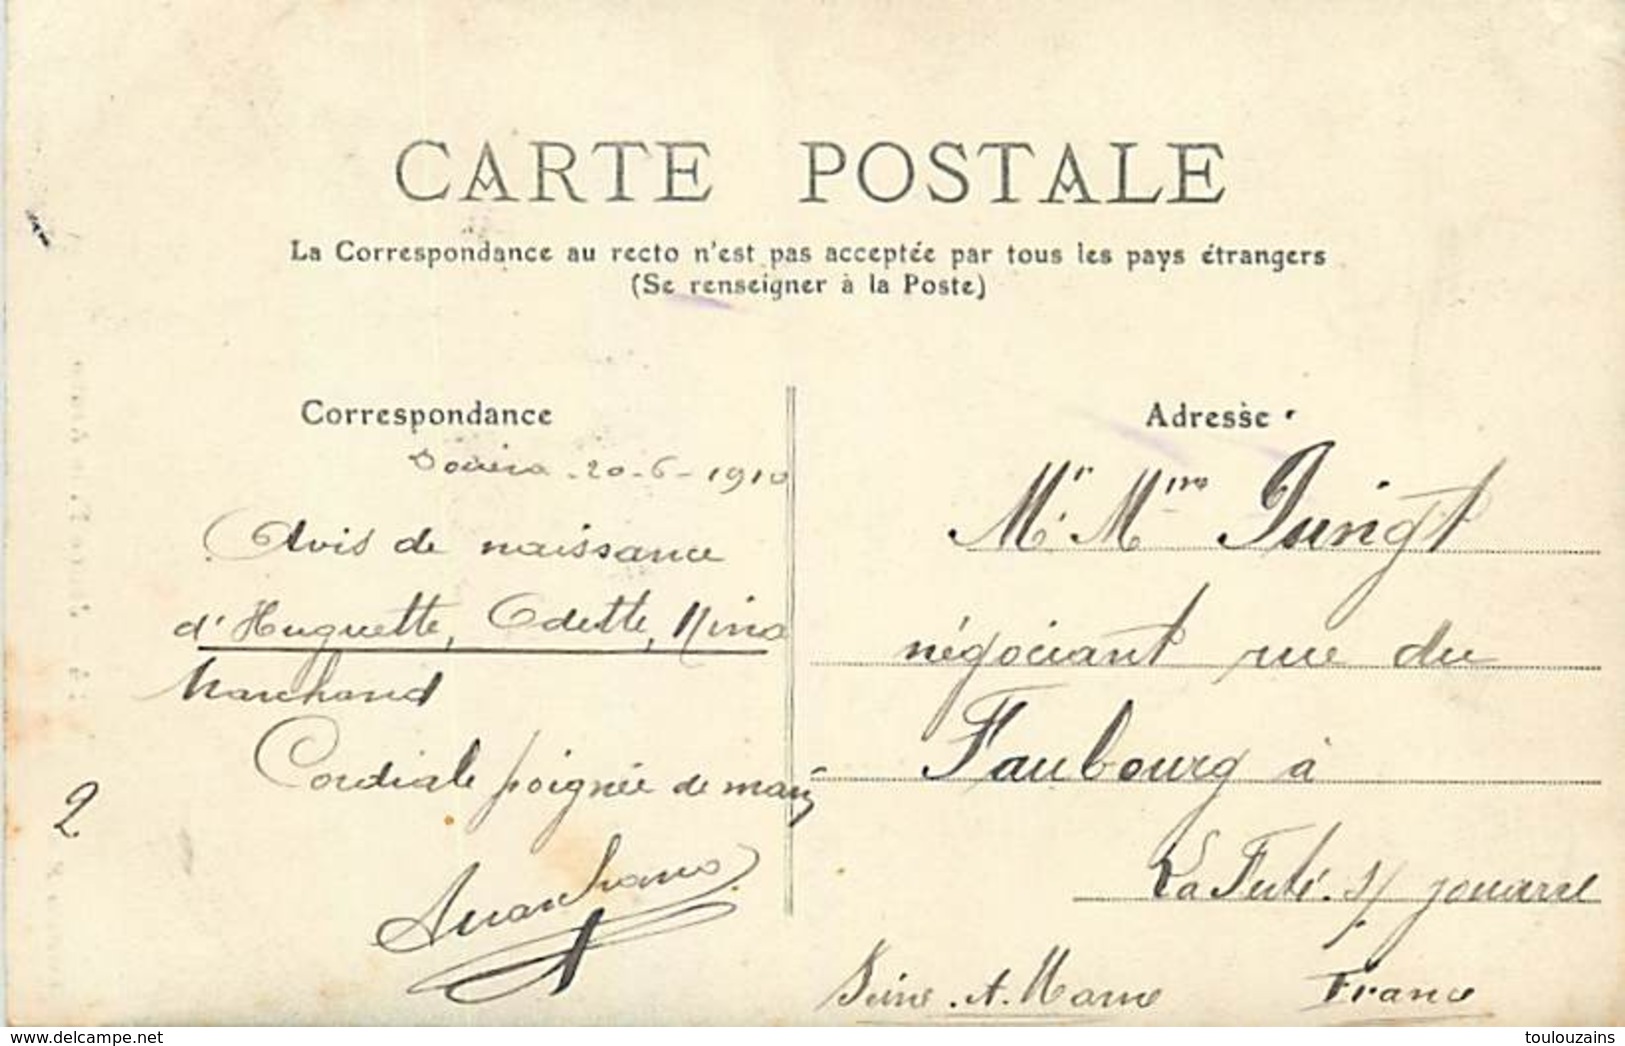 CARTE POSTALE
La Correspondance au recto n'est pas acceptée par tous les pays étrangers
(Se renseigner à la Poste)
Correspondance
20-6-1910
Avis de naissance
d'Huguette, Odette, Nina
Marchand
Cordiale poignée de main
Marchand
2
Adresse
Mr. Mme
négociant rue du
Faubourg à
La Ferté. s/ jouarre
Seine. et. Marne France
delcampe.net
toulouzains